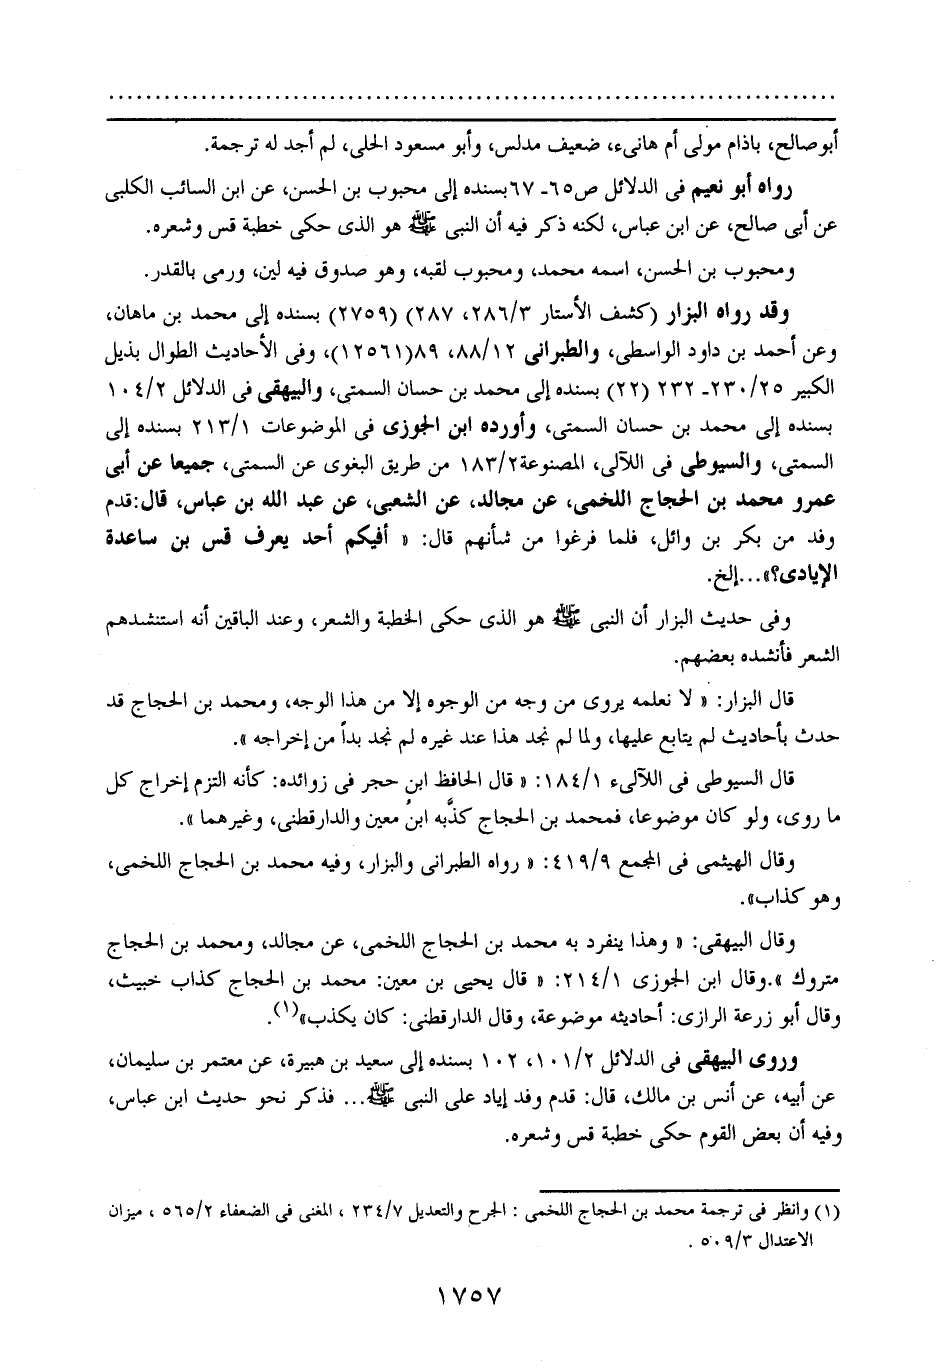 أبوصالح، باذام مولى أم هانىء، ضعيف مدلس، وأبو مسعود الحلى، لم أجد له ترجمة.
رواه أبو نعيم فى الدلائل ص٦٥ـ ٦٧بسنده إلى محبوب بن الحسن، عن ابن السائب الكلبى
عن أبى صالح، عن ابن عباس، لكنه ذكر فيه أن النبى ﷺ هو الذى حكى خطبة قس وشعره.
ومحبوب بن الحسن، اسمه محمد، ومحبوب لقبه، وهو صدوق فيه لين، ورمى بالقدر.
وقد رواه البزار (كشف الأستار ٢٨٦/٣، ٢٨٧) (٢٧٥٩) بسنده إلى محمد بن ماهان،
وعن أحمد بن داود الواسطى، والطبرانى ٨٨/١٢، ٨٩(١٢٥٦١)، وفى الأحاديث الطوال بذيل
الكبير ٢٣٠/٢٥ـ ٢٣٢ (٢٢) بسنده إلى محمد بن حسان السمتى، والبيهقى فى الدلائل ١٠٤/٢
بسنده إلى محمد بن حسان السمتى، وأورده ابن الجوزى فى الموضوعات ٢١٣/١ بسنده إلى
السمتى، والسيوطى فى اللآلى، المصنوعة١٨٣/٢ من طريق البغوى عن السمتى، جميعا عن أبى
عمرو محمد بن الحجاج اللخمى، عن مجالد، عن الشعبى، عن عبد الله بن عباس، قال:قدم
وفد من بكر بن وائل، فلما فرغوا من شأنهم قال: « أفيكم أحد يعرف قس بن ساعدة
الإيادى؟»...إلخ.
وفى حديث البزار أن النبى ﷺ هو الذى حكى الخطبة والشعر، وعند الباقين أنه استنشدهم
الشعر فأنشده بعضهم.
قال البزار: « لا نعلمه يروى من وجه من الوجوه إلا من هذا الوجه، ومحمد بن الحجاج قد
حدث بأحاديث لم يتابع عليها، ولما لم نجد هذا عند غيره لم نجد بداً من إخراجه ».
قال السيوطى فى اللآلىء ١٨٤/١: « قال الحافظ ابن حجر فى زوائده: كأنه التزم إخراج كل
ما روى، ولو كان موضوعا، فمحمد بن الحجاج كذَّبه ابنُ معين والدارقطنى، وغيرهما ».
وقال الهيثمى فى المجمع ٤١٩/٩: « رواه الطبرانى والبزار، وفيه محمد بن الحجاج اللخمى،
وهو كذاب».
وقال البيهقى: « وهذا ينفرد به محمد بن الحجاج اللخمى، عن مجالد، ومحمد بن الحجاج
متروك ».وقال ابن الجوزى ٢١٤/١: « قال يحيى بن معين: محمد بن الحجاج كذاب خبيث،
وقال أبو زرعة الرازى: أحاديثه موضوعة، وقال الدارقطنى: كان يكذب»(١).
وروى البيهقى فى الدلائل ١٠١/٢، ١٠٢ بسنده إلى سعيد بن هبيرة، عن معتمر بن سليمان،
عن أبيه، عن أنس بن مالك، قال: قدم وفد إياد على النبى ﷺ... فذكر نحو حديث ابن عباس،
وفيه أن بعض القوم حكى خطبة قس وشعره.
(١) وانظر فى ترجمة محمد بن الحجاج اللخمى : الجرح والتعديل ٢٣٤/٧ ، المغنى فى الضعفاء ٥٦٥/٢ ، ميزان
الاعتدال ٥٠٩/٣ .
١٧٥٧